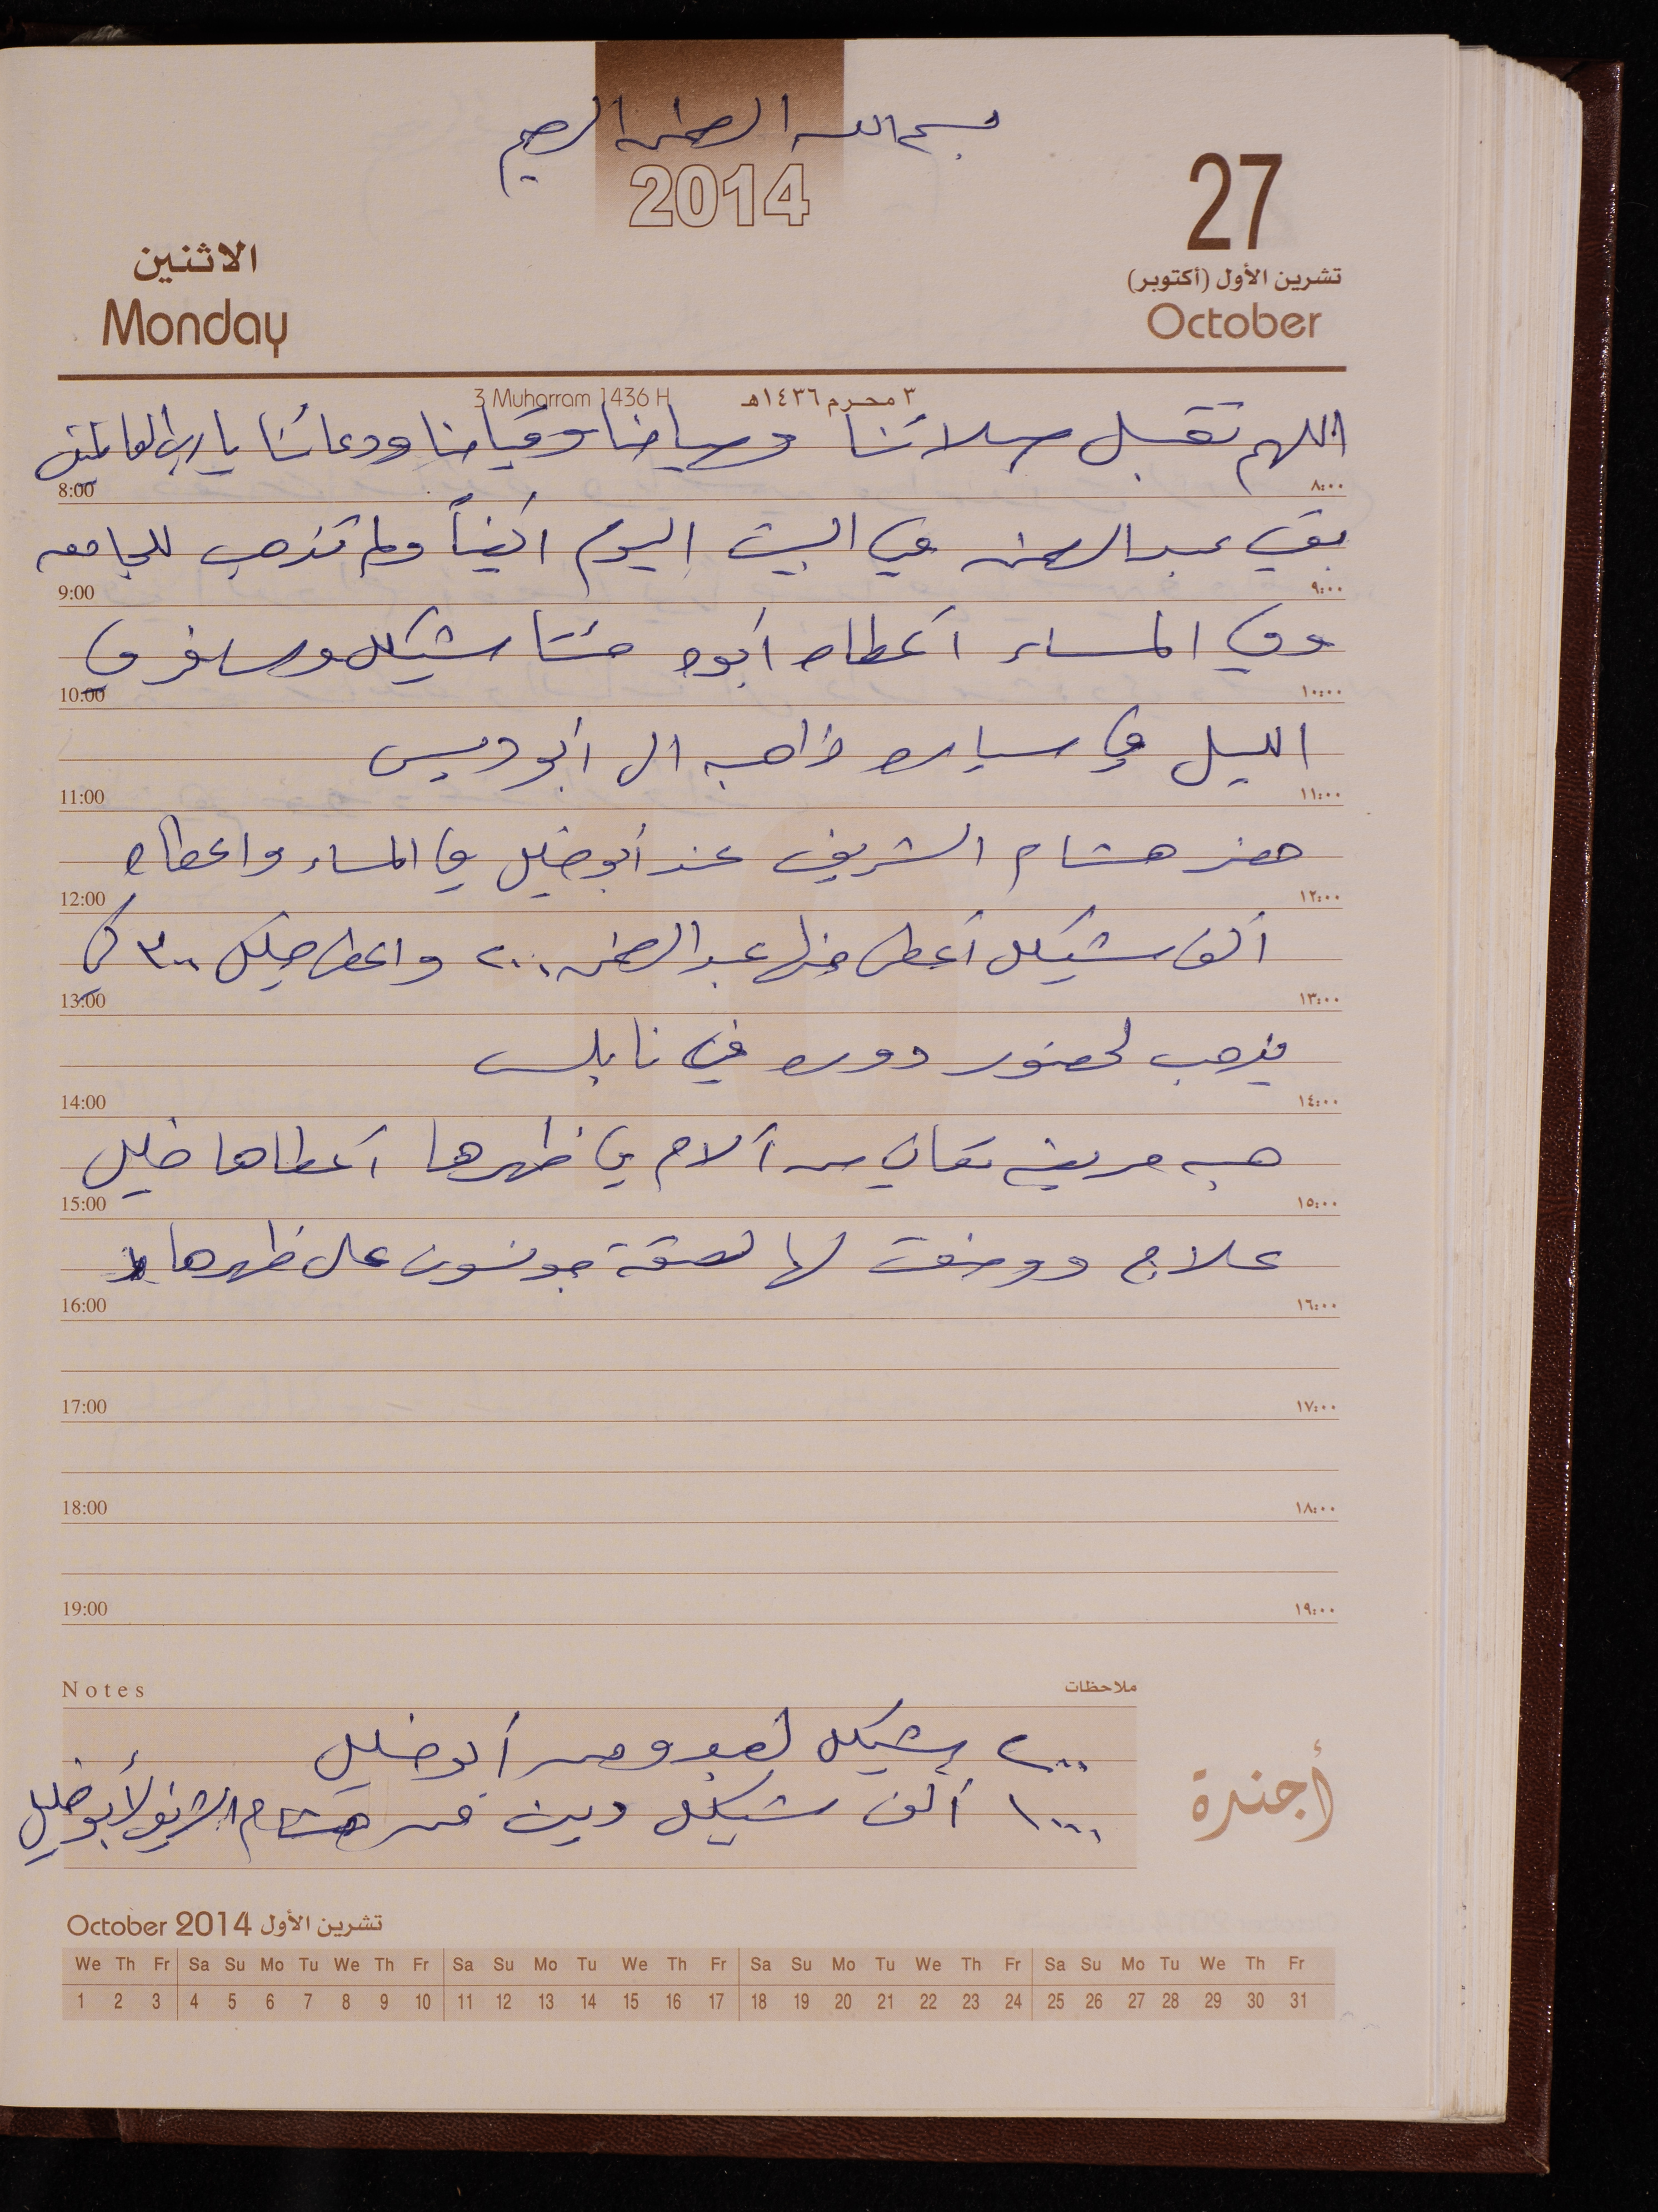 بسم الله الرحمن الرحيم
2014
27
الاثنين
تشرين الأول (أكتوبر)
Monday
October
3 Muharram 1436 H ٣ محرم ١٤٣٦هـ
اللهم تقبل صلاتنا وصيامنا وقيامنا ودعائنا يا رب العالمين
8:00 ٨:٠٠
بقي عبد الرحمن في البيت اليوم أيضاً ولم تذهب للجامعه
9:00 ٩:٠٠
وفي المساء أعطاه أبوه مئتا شيكل وسافر في
10:00 ١٠:٠٠
الليل في سياره ذاهبه الى أبو ديس
11:00 ١١:٠٠
حضر هشام الشريف عند أبو خليل في المساء واعطاه
12:00 ١٢:٠٠
ألف شيكل أعطى منها عبد الرحمن ٢٠٠ واعطى خليل ٣٠٠ كي
13:00 ١٣:٠٠
يذهب لحضور دوره في نابلس
14:00 ١٤:٠٠
هبه مريضه تعاني من آلام في ظهرها أعطاها خليل
15:00 ١٥:٠٠
علاج ووضعت لها لصقة جونسون على ظهرها
16:00 ١٦:٠٠
17:00 ١٧:٠٠
18:00 ١٨:٠٠
19:00 ١٩:٠٠
Notes ملاحظات
٢٠٠ شيكل لعبد من أبو خليل
١٠٠٠ ألف شيكل دين من هشام الشريف لأبو خليل
أجندة
October 2014 تشرين الأول
We Th Fr Sa Su Mo Tu We Th Fr Sa Su Mo Tu We Th Fr Sa Su Mo Tu We Th Fr Sa Su Mo Tu We Th Fr
1 2 3 4 5 6 7 8 9 10 11 12 13 14 15 16 17 18 19 20 21 22 23 24 25 26 27 28 29 30 31